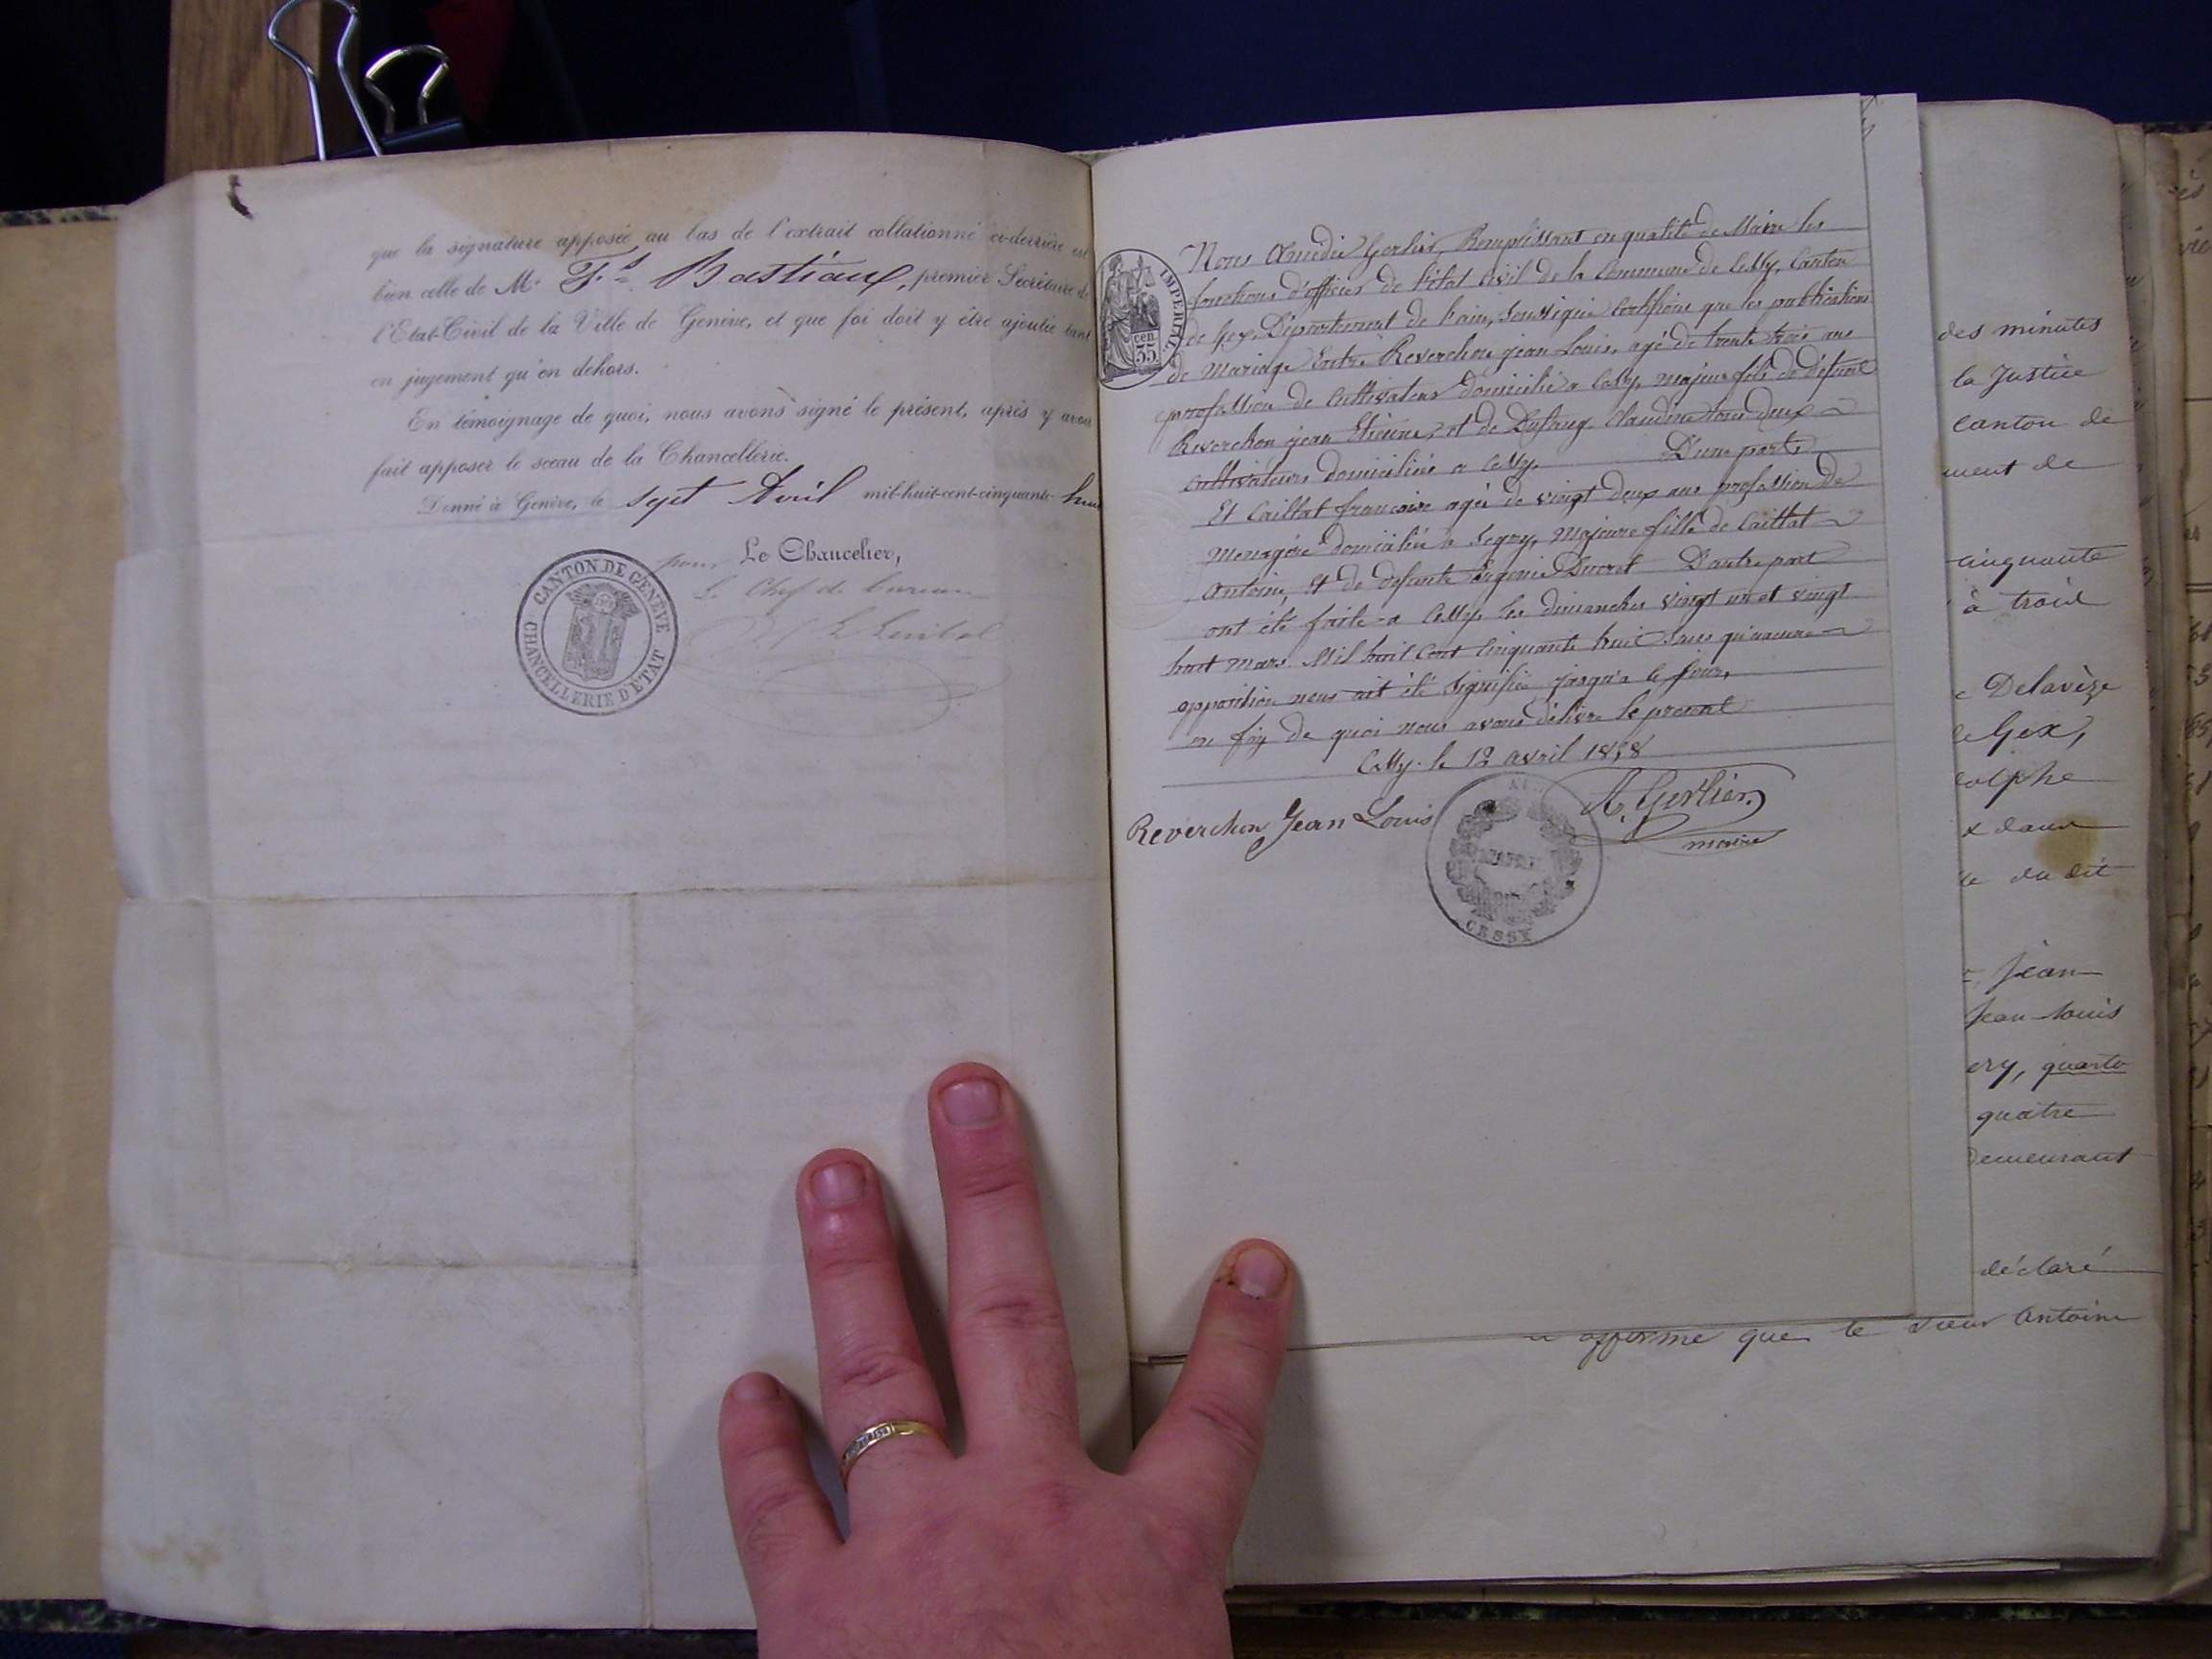 que la signature apposée au bas de l'extrait collationné ci-derrière est
bien celle de Mr. Fs. Bastian, premier Secrétaire de
l'Etat-Civil de la Ville de Genève, et que foi doit y être ajoutée tant
en jugement qu'en dehors.
En témoignage de quoi, nous avons signé le présent, après y avoir
fait apposer le sceau de la Chancellerie.
Donné à Genève, le sept Avril mil-huit-cent-cinquante-huit
pour Le Chancelier,
Le Chef de bureau
CANTON DE GENEVE
CHANCELLERIE D'ETAT
IMPERIAL
55 cen
Nous Amédée Gerlier, Remplissant en qualité de Maire les
fonctions d'officier de l'état civil de la Commune de Cessy, Canton
de Gex, Département de l'ain, Soussigné Certifions que les publications
de Mariage Entre Reverchon jean Louis, agé de trente trois ans
profession de Cultivateur domicilié a Cessy, majeur fils de défunt
Reverchon jean Etienne, et de Claudine tous deux
Cultivateurs domiciliés a Cessy, D'une part,
Et Caillat françoise agée de vingt deux ans profession de
Menagère domiciliée a Segny, Majeure fille de Caillat
Antoine, et de défunte Ducret D'autre part
ont été faite a Cessy, les dimanches vingt un et vingt
huit mars Mil huit Cent Cinquante huit sans qu'aucune
opposition nous ait été signifiée jusqu'a ce jour,
en foy de quoi nous avons délivré le présent
Cessy le 12 avril 1858
Reverchon Jean Louis
A. Gerlier
maire
CESSY
des minutes
la Justice
canton de
ment de
cinquante
à trois
e Delavèze
de Gex,
dolphe
x dans
le du dit
Jean
Jean-Louis
ery, quarto
quatre
Demeurant
déclaré
affirme que le sieur Antoine